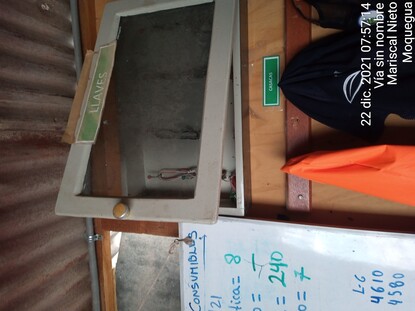 LLAVES
CONSUMIBLES
21
tica = 8
= 240
= 7
L-6
4610
4580
CASACAS
22 dic. 2021 07:57:14
Vía sin nombre
Mariscal Nieto
Moquegua